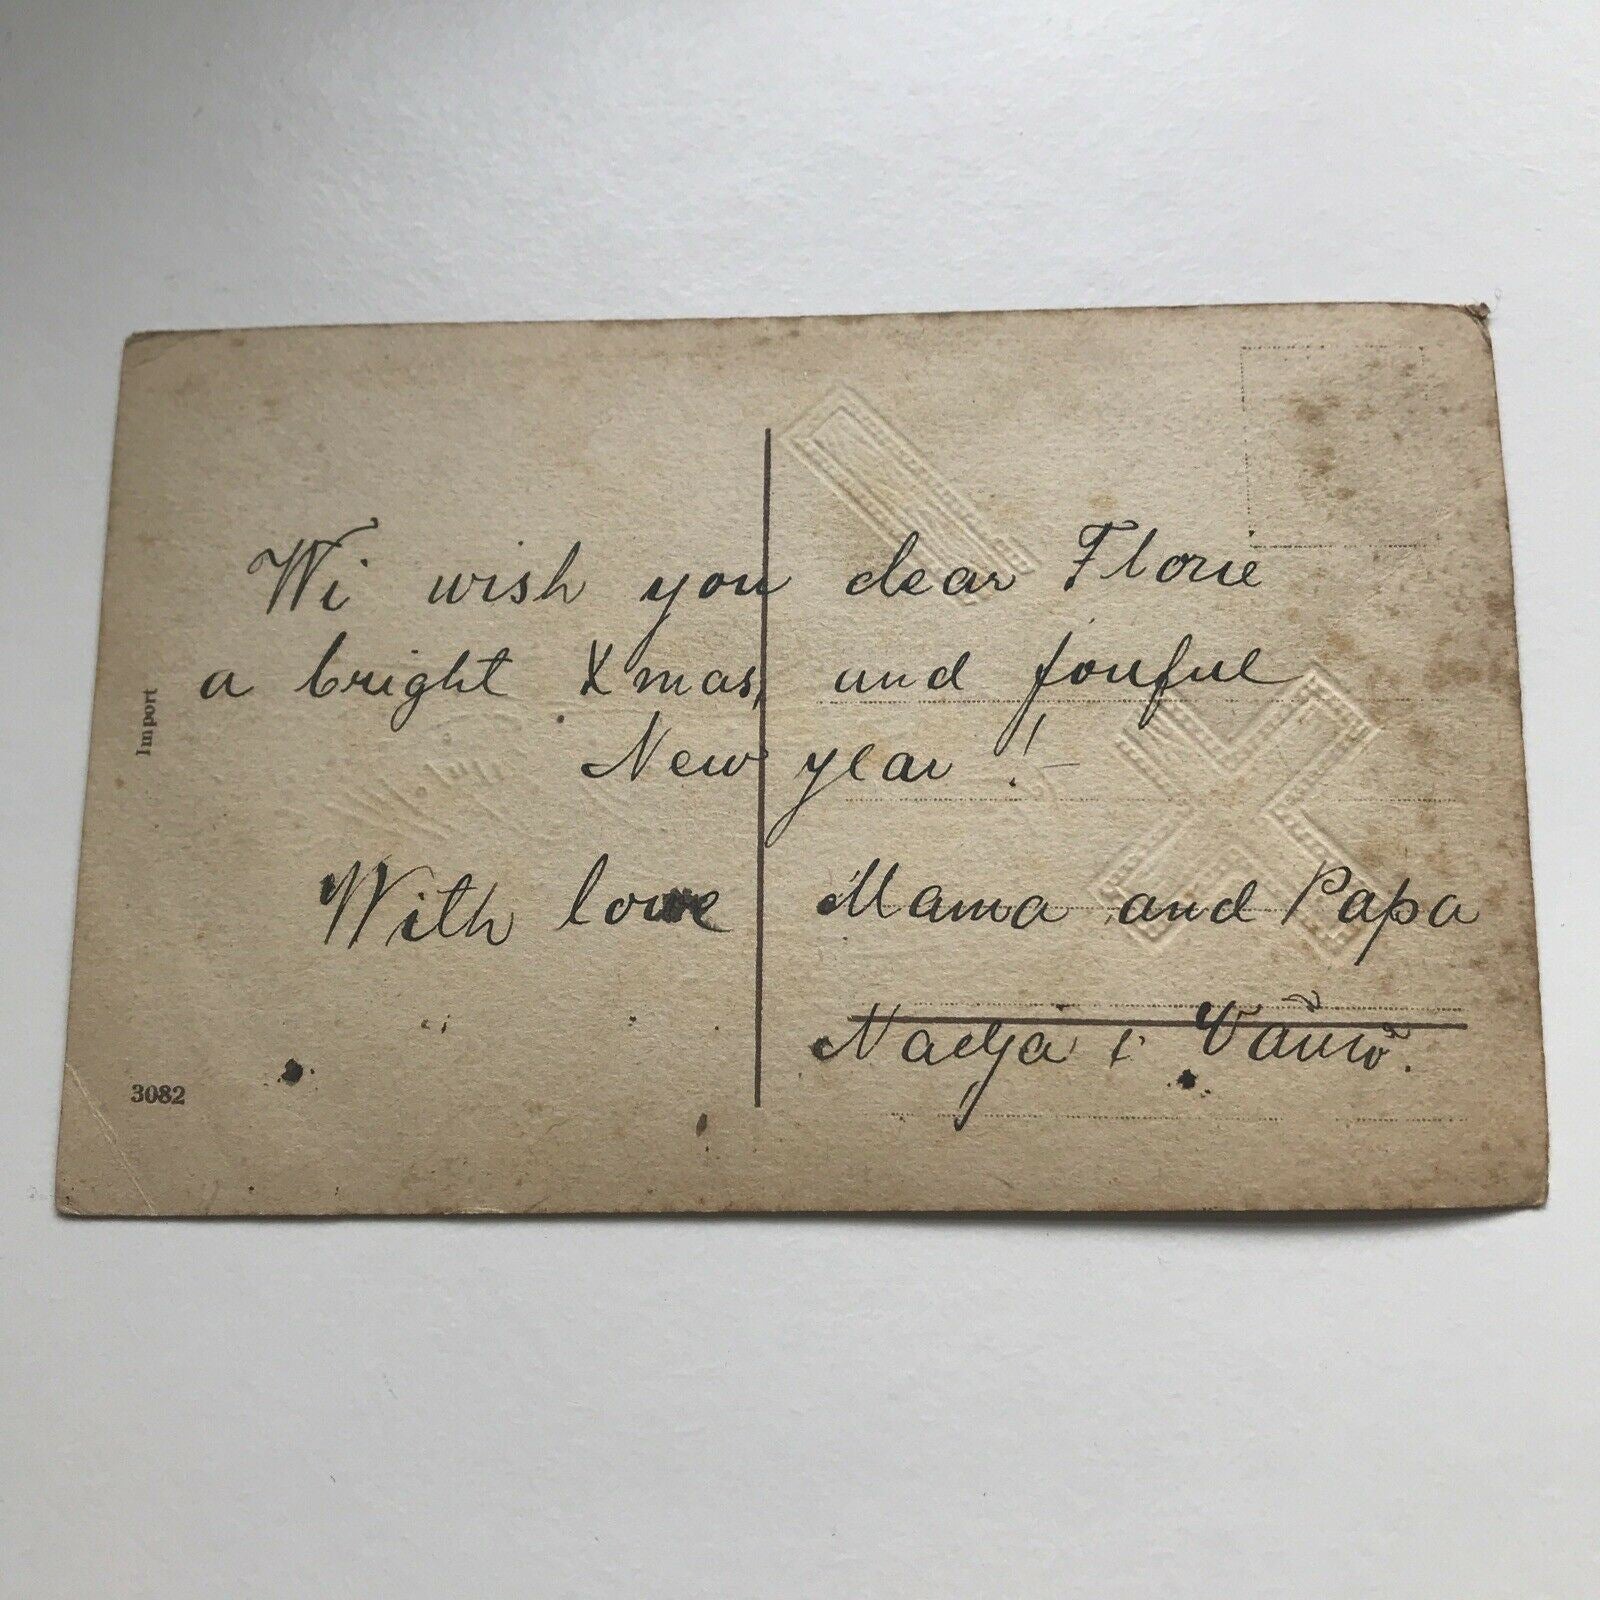 Wi wish you dear Florie
a bright Xmas, and fouful
New year!-
With love Mama and Papa
Nadja i
Import
3082